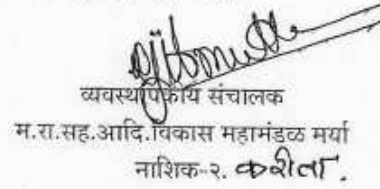 व्यवस्थापकीय संचालक
म.रा.सह.आदि.विकास महामंडळ मर्या
नाशिक-२. करीता.